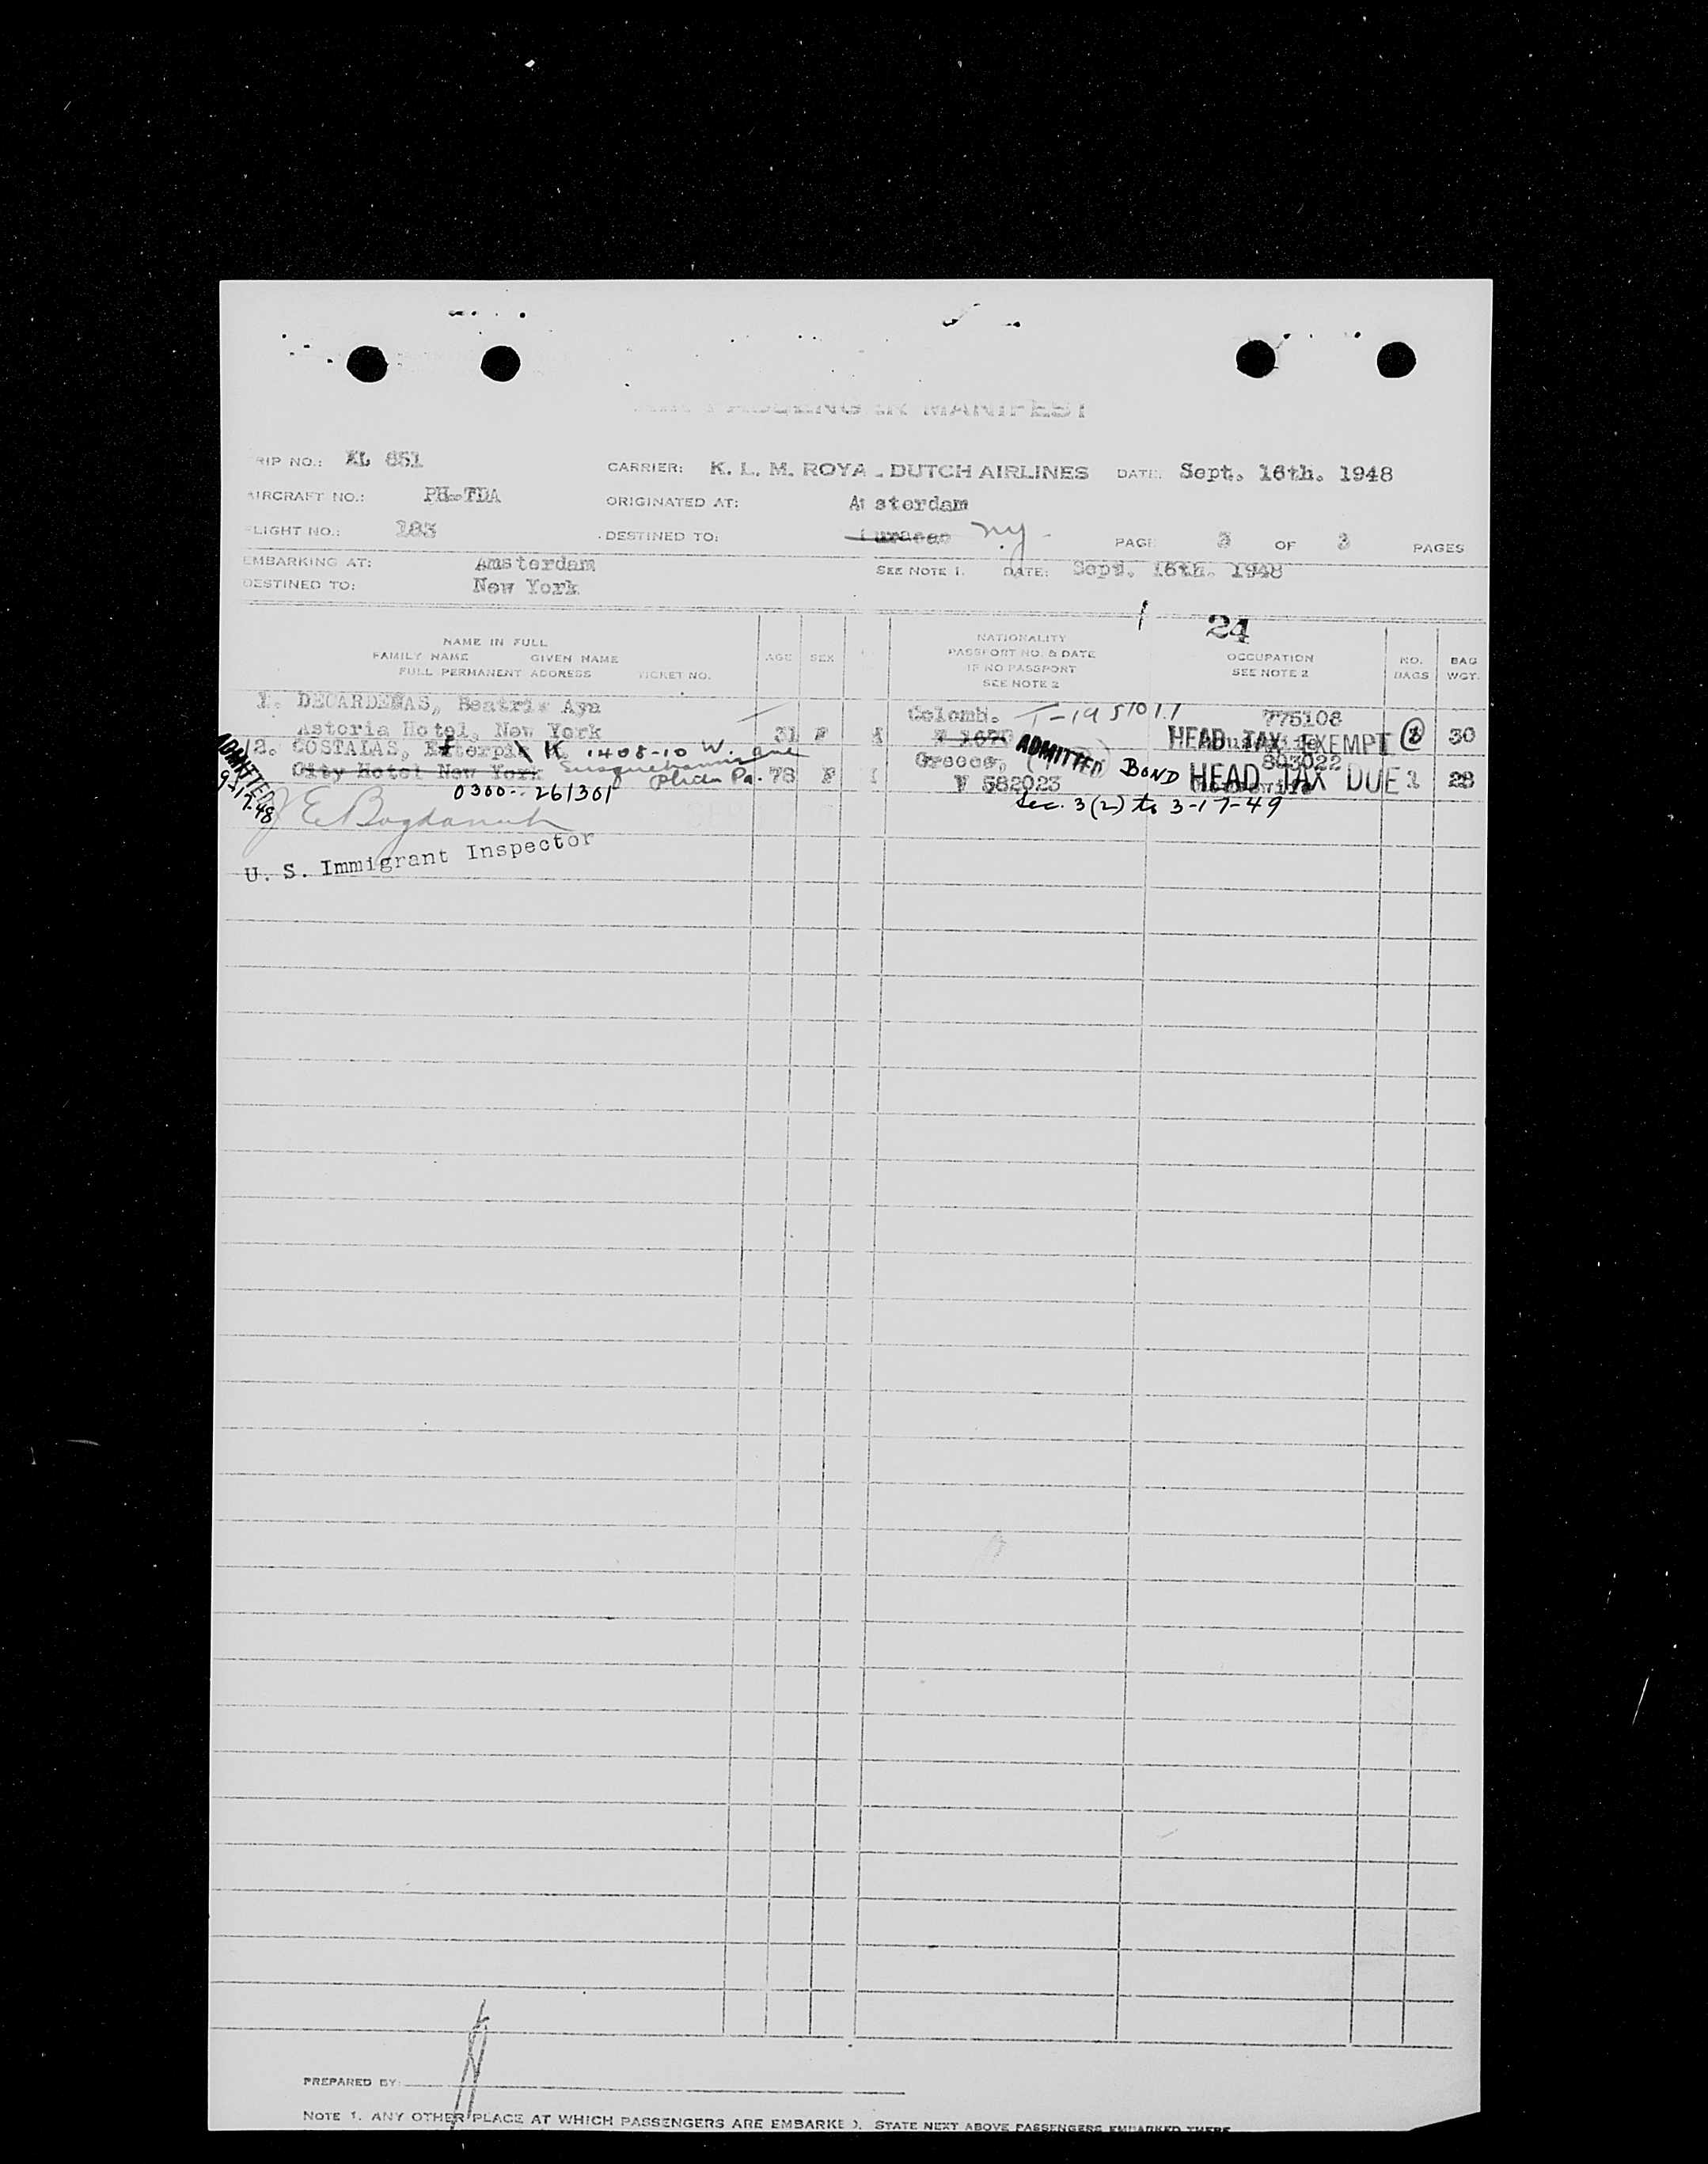 MANIFEST
RIP NO.: KL 651 CARRIER: K. L. M. ROYA DUTCH AIRLINES DATE: Sept. 16th. 1948
AIRCRAFT NO.: PH-TDA ORIGINATED AT: Amsterdam
FLIGHT NO.: 183 DESTINED TO: Curacao NY PAGE 3 OF 3 PAGES
EMBARKING AT: Amsterdam SEE NOTE 1. DATE: Sept. 16th. 1948
DESTINED TO: New York
24
NAME IN FULL
FAMILY NAME GIVEN NAME
FULL PERMANENT ADDRESS TICKET NO.
AGE SEX
NATIONALITY
PASSPORT NO. & DATE
IF NO PASSPORT
SEE NOTE 2
OCCUPATION
SEE NOTE 2
NO. BAGS
BAG WGT.
1. DECARDENAS, Beatris Aya Colomb. T-1951011 775108
Astoria Hotel, New York 31 F HEAD TAX EXEMPT 30
2. COSTALAS, K. 1408-10 W. Susquehanna ave Phila Pa. Greece, 803022
City Hotel New York 78 F ADMITTED BOND V 582023 HEAD TAX DUE 1 28
ADMITTED 9-17-48
0300-261301 Sec. 3(2) to 3-17-49
U. S. Immigrant Inspector
PREPARED BY
NOTE 1. ANY OTHER PLACE AT WHICH PASSENGERS ARE EMBARKED. STATE NEXT ABOVE PASSENGERS EMBARKED THERE